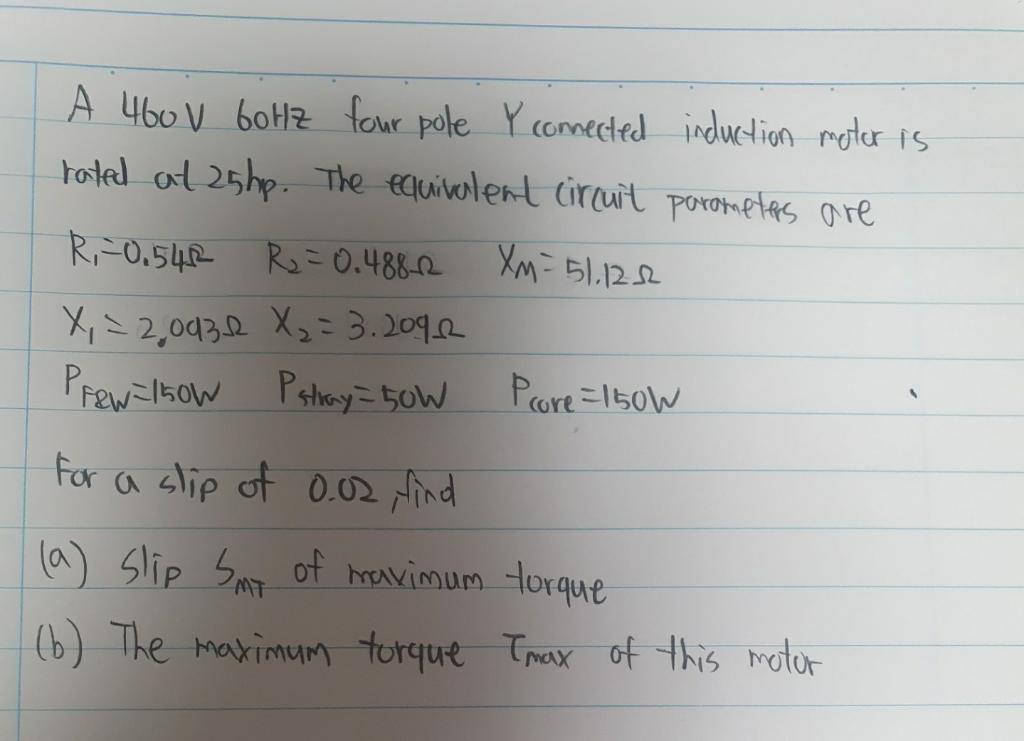 A 460V 60HZ four pole Y connected induction motor is
rated at 25hp. The equivalent circuit parameters are
R₁=0.54Ω R₂=0.488Ω X_M=51.12Ω
X₁=2.093Ω X₂=3.209Ω
P_F&W=150W P_stray=50W P_core=150W
For a slip of 0.02, find
(a) Slip S_MT of maximum torque
(b) The maximum torque τ_max of this motor